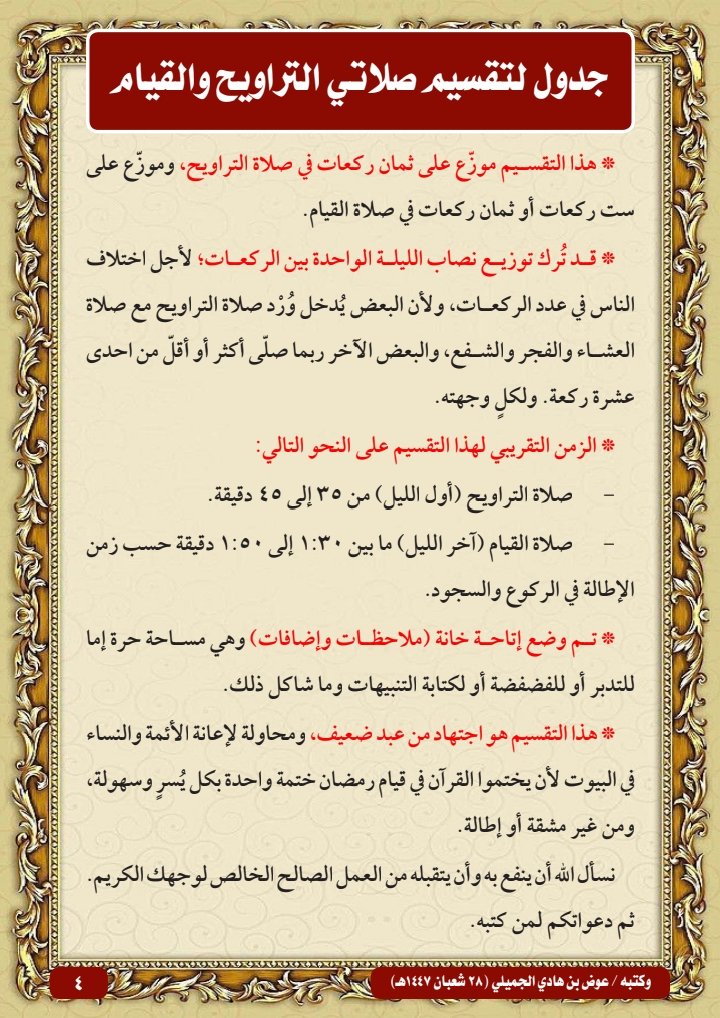 جدول لتقسيم صلاتي التراويح والقيام
* هذا التقسيم موزّع على ثمان ركعات في صلاة التراويح، وموزّع على
ست ركعات أو ثمان ركعات في صلاة القيام.
* قد تُرك توزيع نصاب الليلة الواحدة بين الركعات؛ لأجل اختلاف
الناس في عدد الركعات، ولأن البعض يُدخل وُرْد صلاة التراويح مع صلاة
العشاء والفجر والشفع، والبعض الآخر ربما صلّى أكثر أو أقلّ من احدى
عشرة ركعة. ولكلٍ وجهته.
* الزمن التقريبي لهذا التقسيم على النحو التالي:
- صلاة التراويح (أول الليل) من ٣٥ إلى ٤٥ دقيقة.
- صلاة القيام (آخر الليل) ما بين ١:٣٠ إلى ١:٥٠ دقيقة حسب زمن
الإطالة في الركوع والسجود.
* تم وضع إتاحة خانة (ملاحظات وإضافات) وهي مساحة حرة إما
للتدبر أو للفضفضة أو لكتابة التنبيهات وما شاكل ذلك.
* هذا التقسيم هو اجتهاد من عبد ضعيف، ومحاولة لإعانة الأئمة والنساء
في البيوت لأن يختموا القرآن في قيام رمضان ختمة واحدة بكل يُسرٍ وسهولة،
ومن غير مشقة أو إطالة.
نسأل الله أن ينفع به وأن يتقبله من العمل الصالح الخالص لوجهك الكريم.
ثم دعواتكم لمن كتبه.
وكتبه / عوض بن هادي الجميلي (٢٨ شعبان ١٤٤٧هـ)
٤